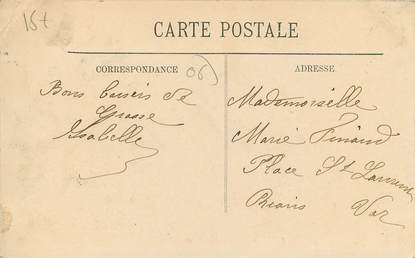 15+
CARTE POSTALE
CORRESPONDANCE
06
ADRESSE
Bons baisers de
Grasse
Isabelle
Mademoiselle
Marie
Place St Laurent
Rians Var